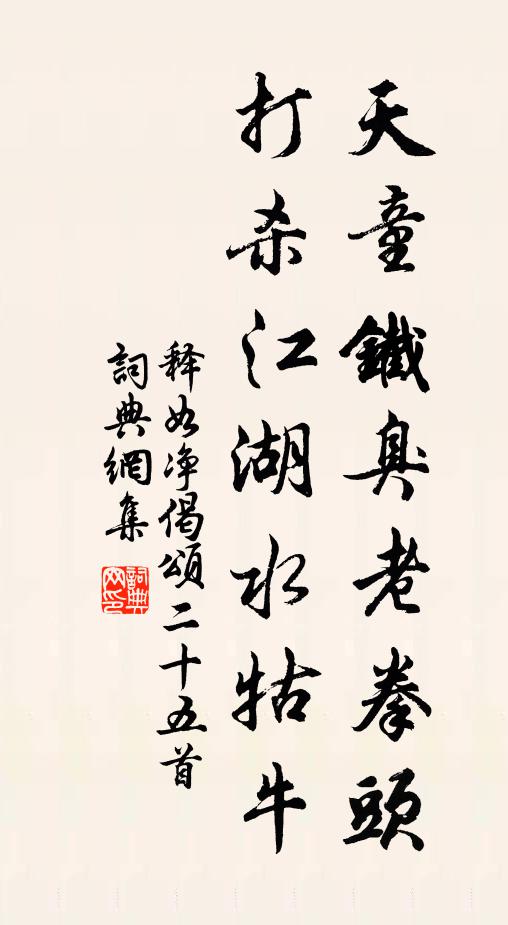 天童鐵臭老拳頭
打杀江湖水牯牛
释如净偈頌二十五首
詞典網集
詞典网印